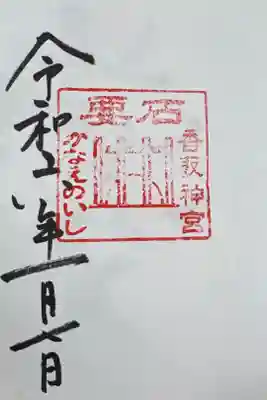 令和六年一月七日
要石
香取神宮
かなめのいし